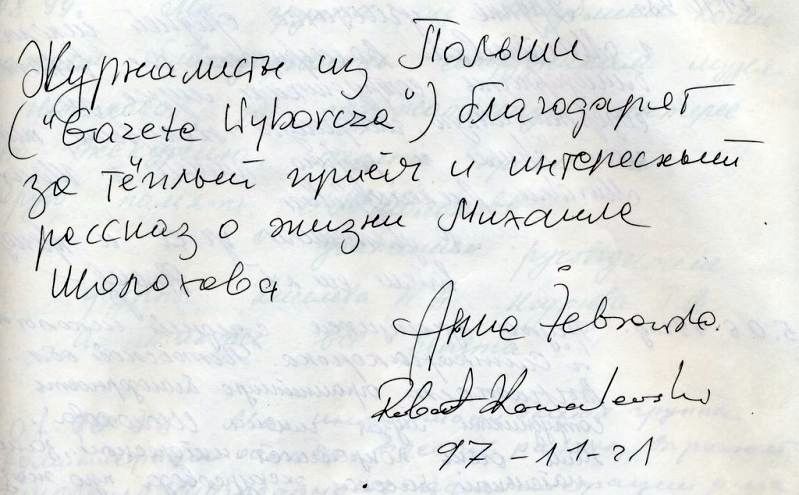 Журналисты из Польши
("Gazeta Wyborcza") благодарят
за тёплый приём и интересный
рассказ о жизни Михаила
Шолохова
Anna Żebrowska.
Robert Kowalewski
97-11-21